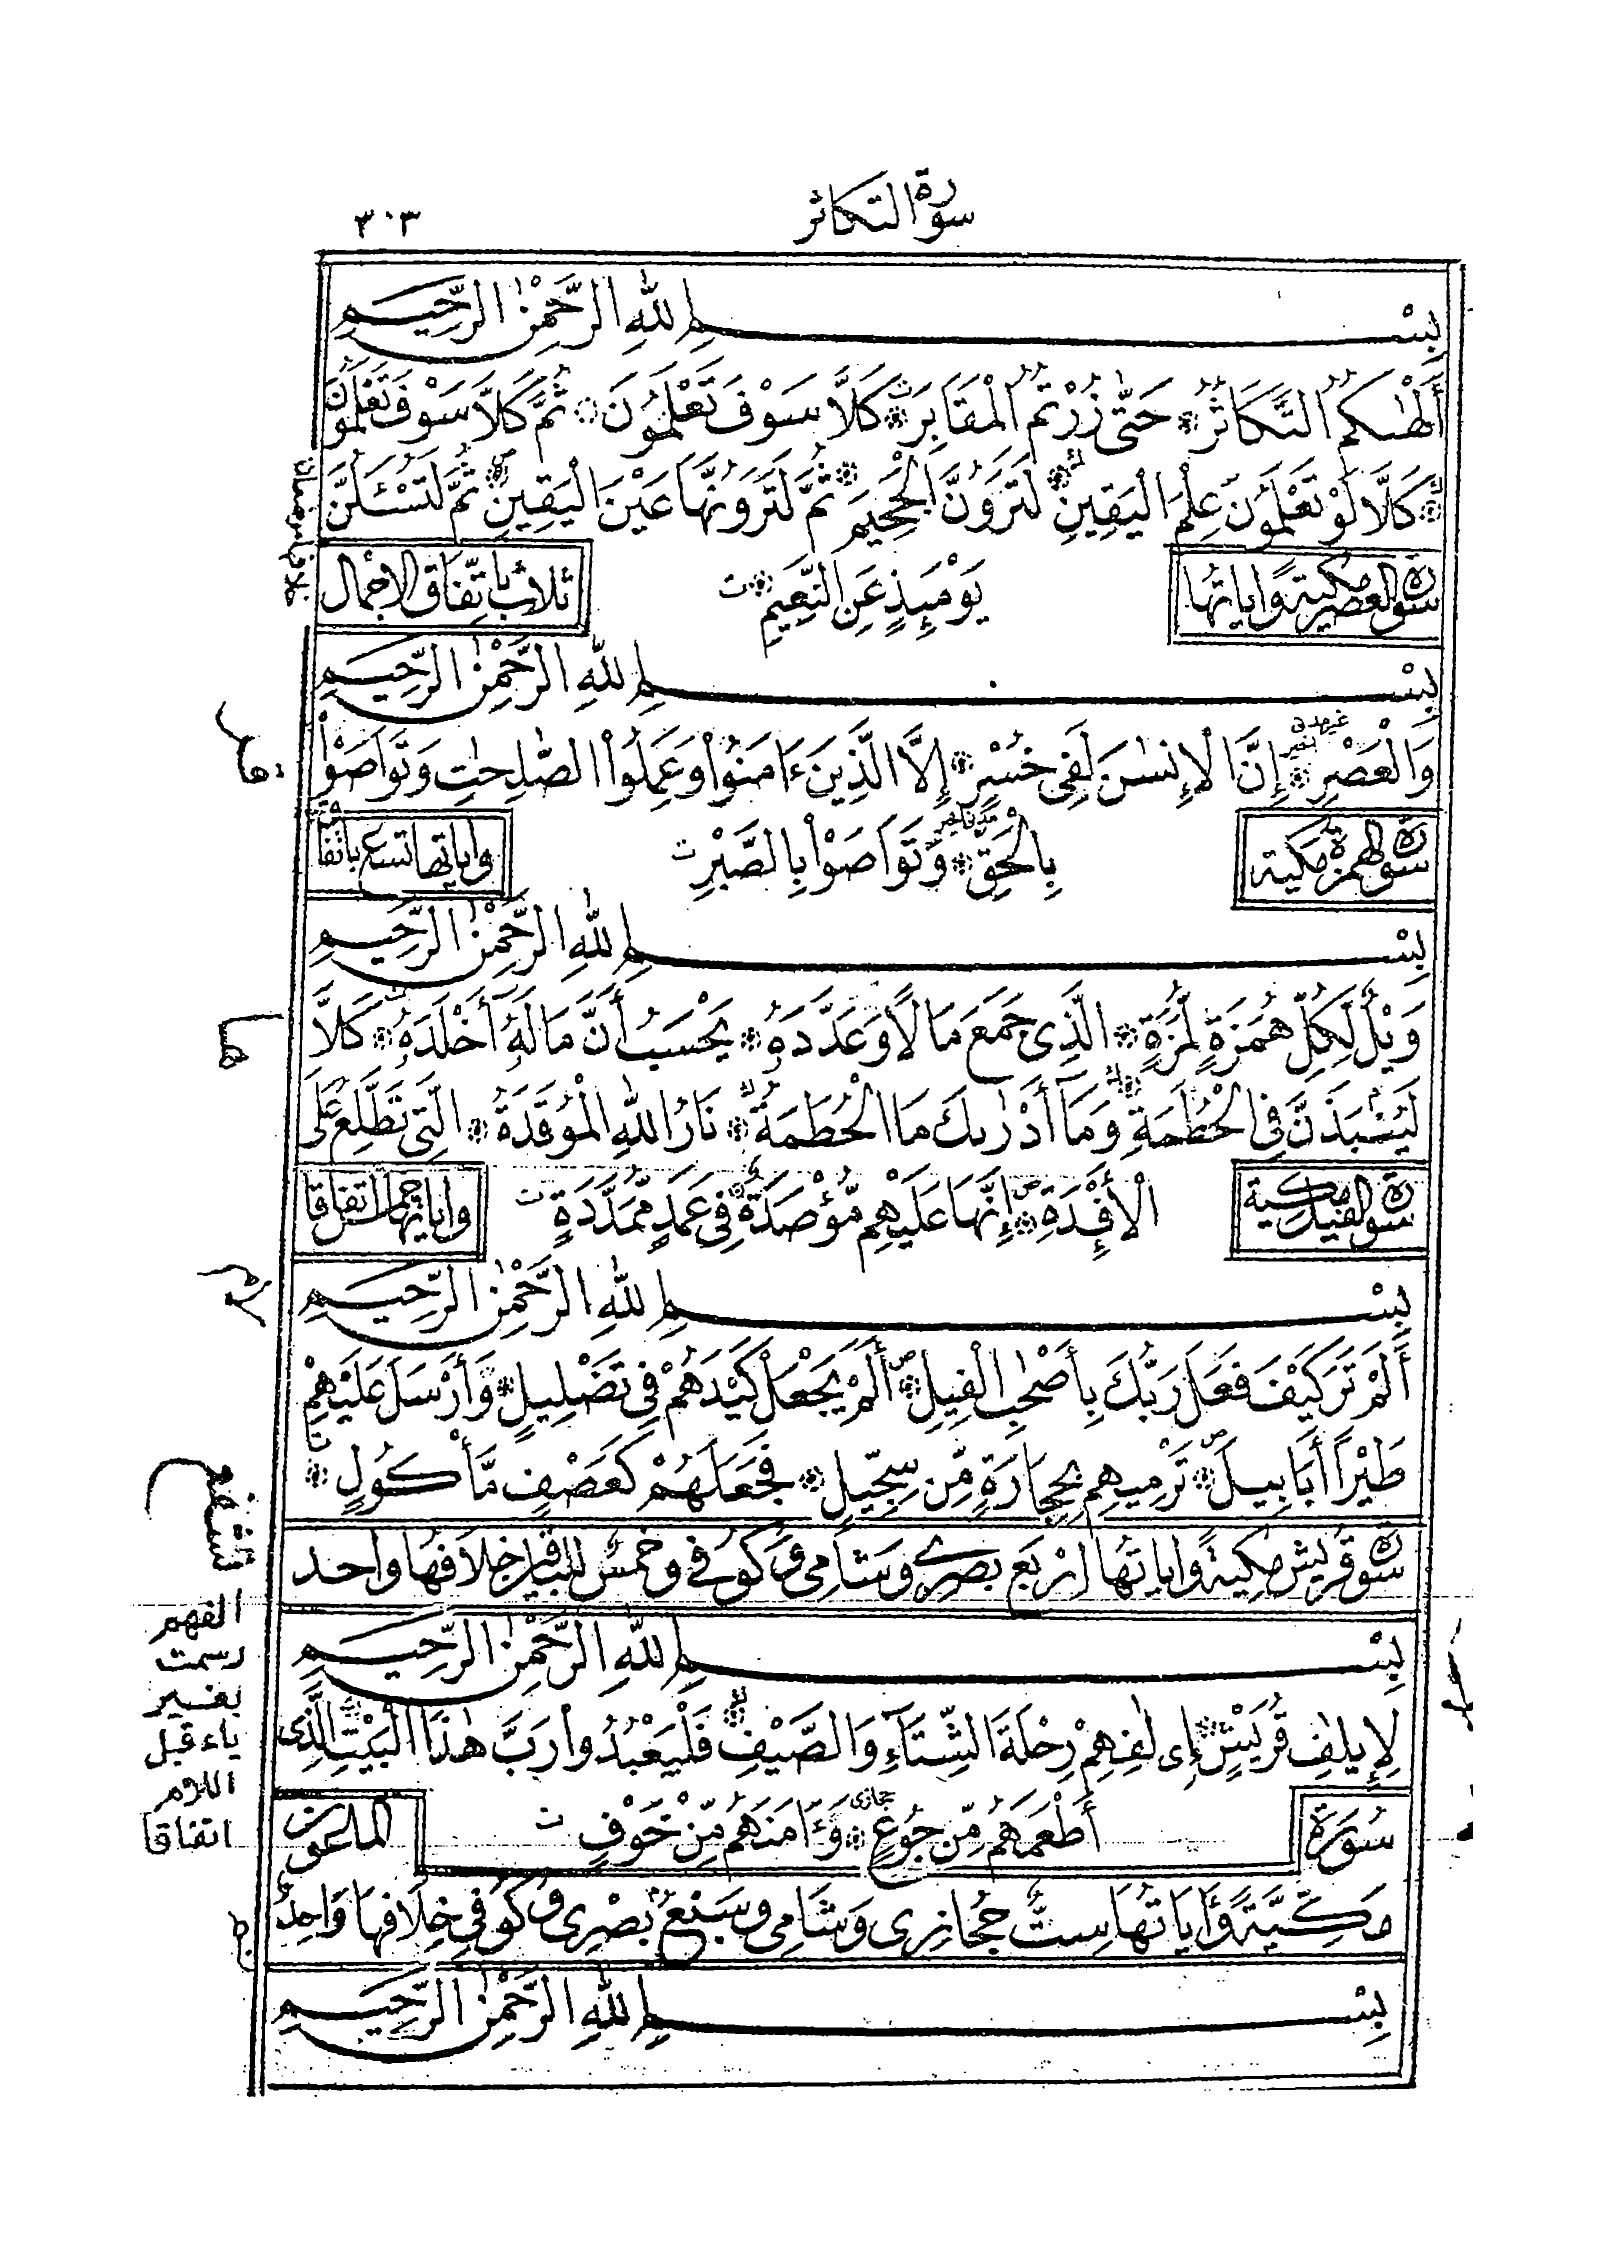 سورة التكاثر ٣٠٣
بِسْمِ اللَّهِ الرَّحْمَٰنِ الرَّحِيمِ
أَلْهَىٰكُمُ التَّكَاثُرُ ۞ حَتَّىٰ زُرْتُمُ الْمَقَابِرَ ۞ كَلَّا سَوْفَ تَعْلَمُونَ ۞ ثُمَّ كَلَّا سَوْفَ تَعْلَمُونَ
۞ كَلَّا لَوْ تَعْلَمُونَ عِلْمَ الْيَقِينِ ۞ لَتَرَوُنَّ الْجَحِيمَ ۞ ثُمَّ لَتَرَوُنَّهَا عَيْنَ الْيَقِينِ ۞ ثُمَّ لَتُسْـَٔلُنَّ
يَوْمَئِذٍ عَنِ النَّعِيمِ ۞ ت
سورة العصر مكية واياتها ثلاث باتفاق الاجمال
بِسْمِ اللَّهِ الرَّحْمَٰنِ الرَّحِيمِ
وَالْعَصْرِ ۞ إِنَّ الْإِنسَٰنَ لَفِى خُسْرٍ ۞ إِلَّا الَّذِينَ ءَامَنُوا۟ وَعَمِلُوا۟ الصَّٰلِحَٰتِ وَتَوَاصَوْا۟
بِالْحَقِّ ۞ وَتَوَاصَوْا۟ بِالصَّبْرِ ت
سورة الهمزة مكية واياتها تسع باتفا
بِسْمِ اللَّهِ الرَّحْمَٰنِ الرَّحِيمِ
وَيْلٌ لِّكُلِّ هُمَزَةٍ لُّمَزَةٍ ۞ الَّذِى جَمَعَ مَالًا وَعَدَّدَهُ ۞ يَحْسَبُ أَنَّ مَالَهُ أَخْلَدَهُ ۞ كَلَّا
لَيُنۢبَذَنَّ فِى الْحُطَمَةِ ۞ وَمَا أَدْرَىٰكَ مَا الْحُطَمَةُ ۞ نَارُ اللَّهِ الْمُوقَدَةُ ۞ الَّتِى تَطَّلِعُ عَلَى
الْأَفْـِٔدَةِ ۞ إِنَّهَا عَلَيْهِم مُّؤْصَدَةٌ ۞ فِى عَمَدٍ مُّمَدَّدَةٍ ت
سورة الفيل مكية واياتها خمس اتفاقا
بِسْمِ اللَّهِ الرَّحْمَٰنِ الرَّحِيمِ
أَلَمْ تَرَ كَيْفَ فَعَلَ رَبُّكَ بِأَصْحَٰبِ الْفِيلِ ۞ أَلَمْ يَجْعَلْ كَيْدَهُمْ فِى تَضْلِيلٍ ۞ وَأَرْسَلَ عَلَيْهِمْ
طَيْرًا أَبَابِيلَ ۞ تَرْمِيهِم بِحِجَارَةٍ مِّن سِجِّيلٍ ۞ فَجَعَلَهُمْ كَعَصْفٍ مَّأْكُولٍ ۞ ت
سورة قريش مكية واياتها اربع بصرى وشامى وكوفى وخمس للباقين خلافها واحد
بِسْمِ اللَّهِ الرَّحْمَٰنِ الرَّحِيمِ
لِإِيلَٰفِ قُرَيْشٍ ۞ إِۦلَٰفِهِمْ رِحْلَةَ الشِّتَآءِ وَالصَّيْفِ ۞ فَلْيَعْبُدُوا۟ رَبَّ هَٰذَا الْبَيْتِ ۞ الَّذِى
أَطْعَمَهُم مِّن جُوعٍ حجازى ۞ وَءَامَنَهُم مِّنْ خَوْفٍ ت
سُورَة الماعون
مَكِّيَّة وَاَيَاتُهَا سِتٌّ حجازى وَشَامِى وَسَبْعٌ بَصْرِى وكوفى خِلَافُهَا وَاحِدٌ
بِسْمِ اللَّهِ الرَّحْمَٰنِ الرَّحِيمِ
الفهم
رسمت
بغير
ياء قبل
اللام
اتفاقا